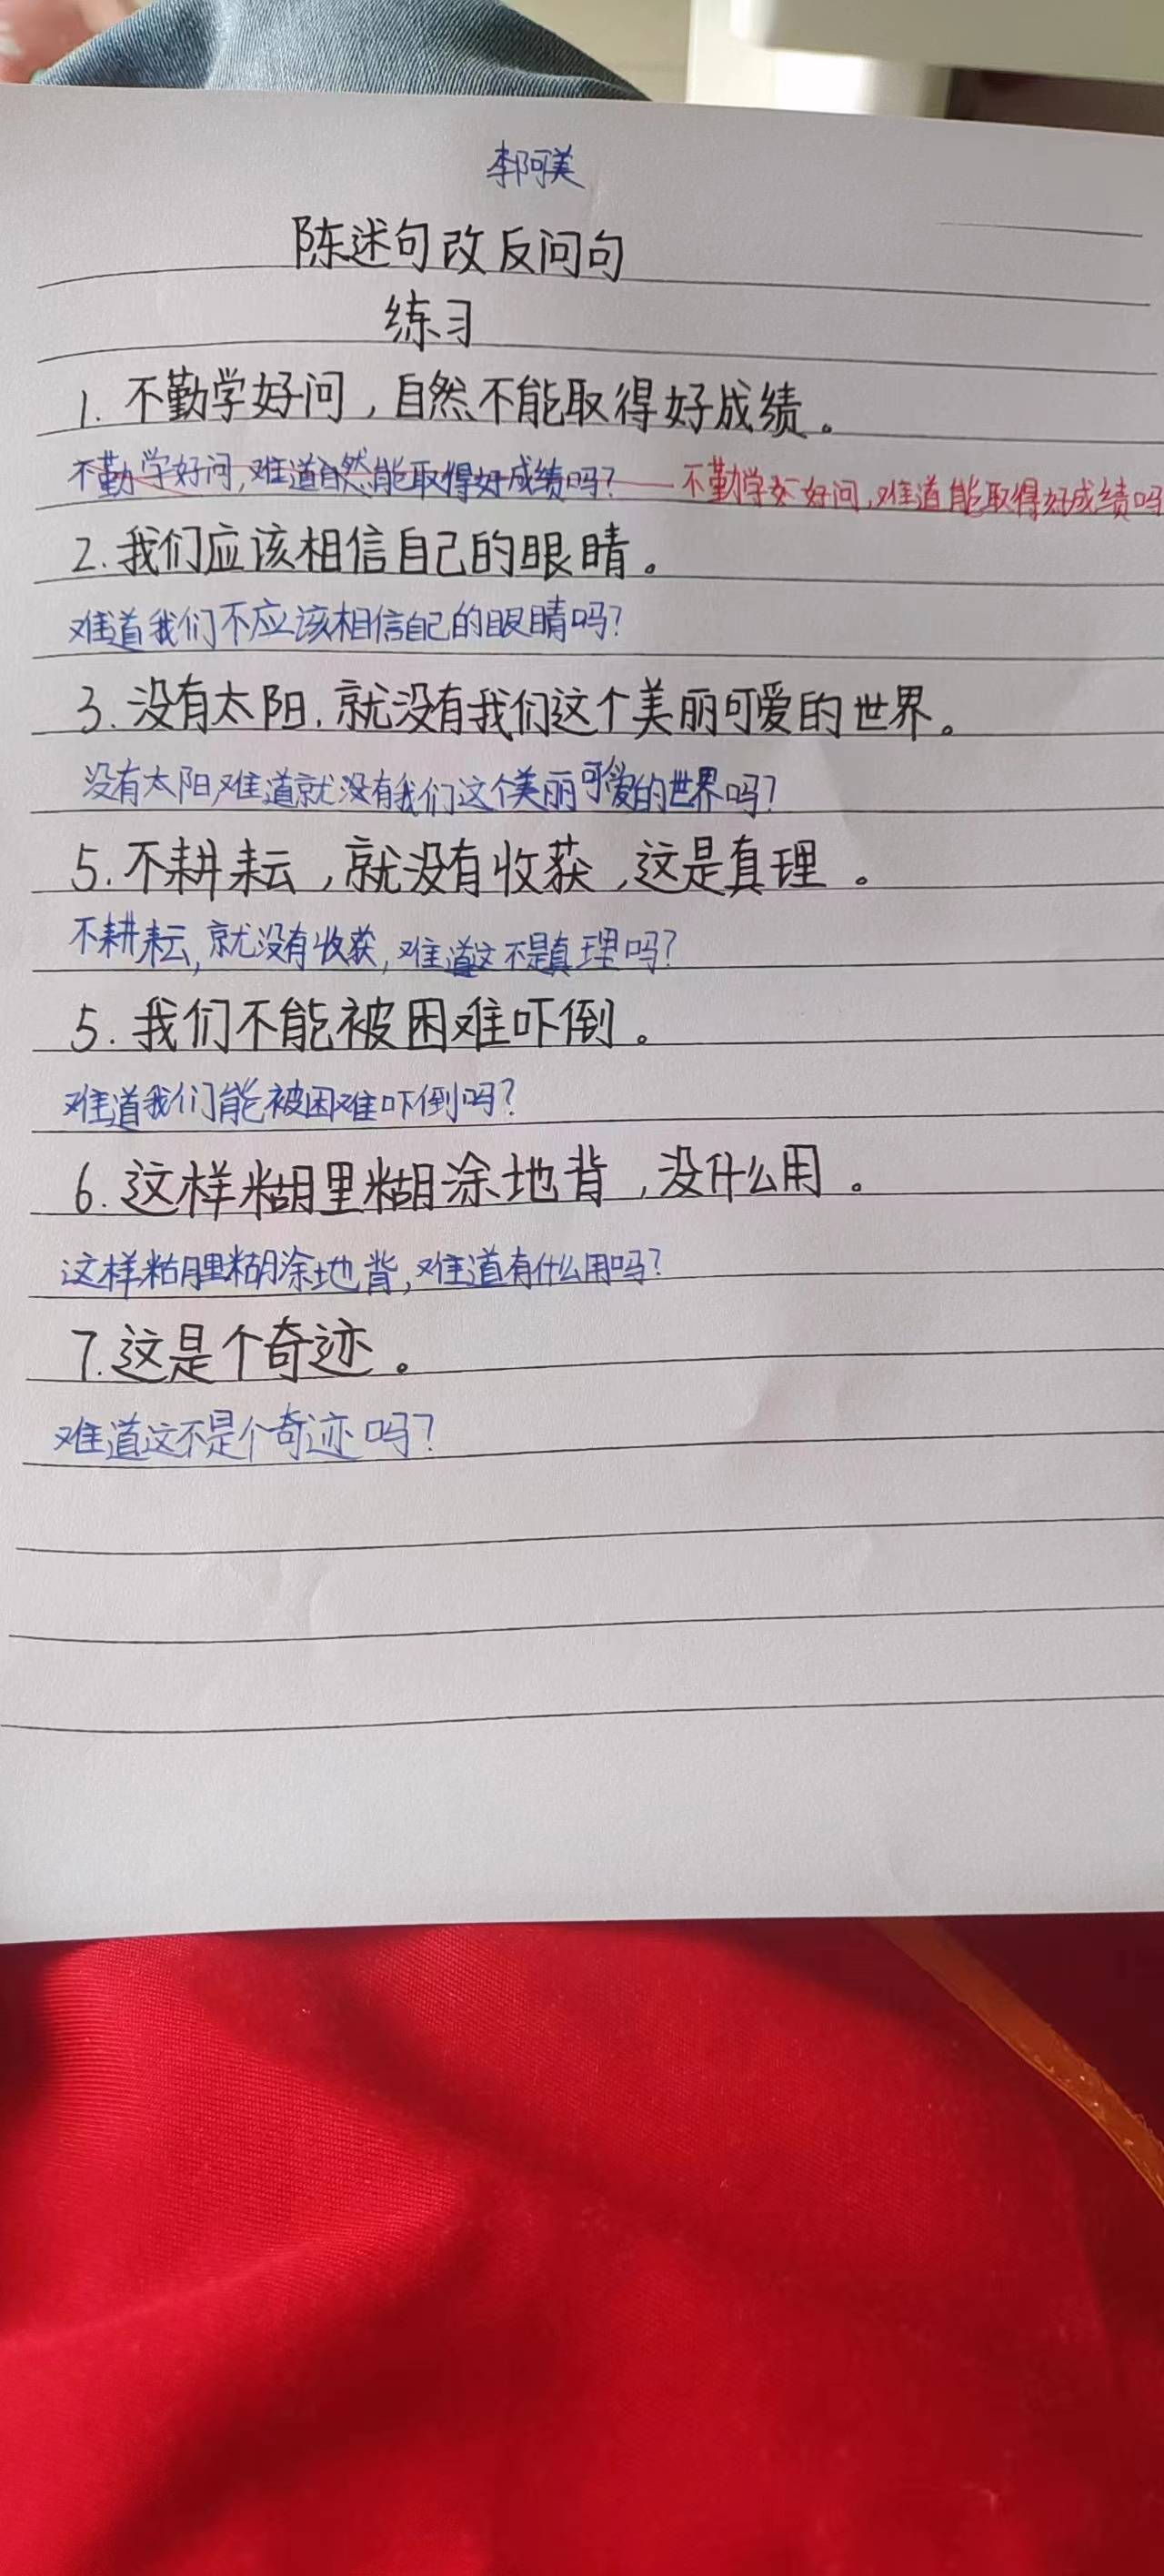 李阿美
陈述句改反问句
练习
1. 不勤学好问，自然不能取得好成绩。
不勤学好问,难道自然能取得好成绩吗? 不勤学好问,难道能取得好成绩吗
2. 我们应该相信自己的眼睛。
难道我们不应该相信自己的眼睛吗?
3. 没有太阳,就没有我们这个美丽可爱的世界。
没有太阳,难道就没有我们这个美丽可爱的世界吗?
5. 不耕耘,就没有收获,这是真理。
不耕耘,就没有收获,难道这不是真理吗?
5. 我们不能被困难吓倒。
难道我们能被困难吓倒吗?
6. 这样糊里糊涂地背,没什么用。
这样糊里糊涂地背,难道有什么用吗?
7. 这是个奇迹。
难道这不是个奇迹吗?